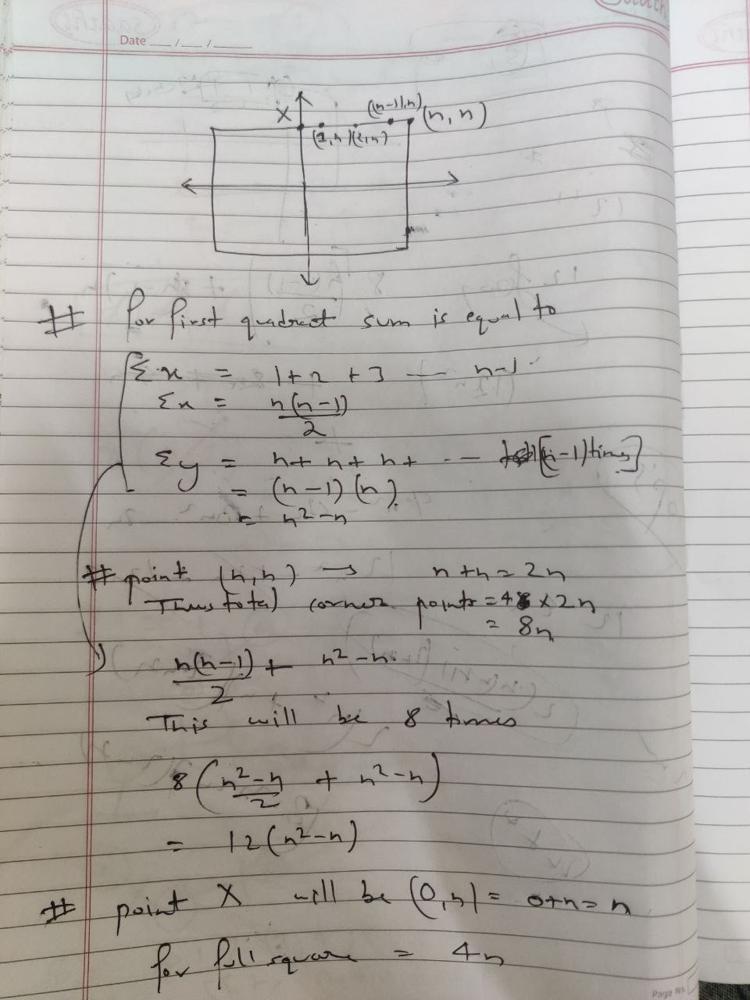 Date __/__/____
X
(n-1,n)
(n, n)
(1,n)(2,n)
# for first quadrant sum is equal to
Σx = 1+2+3 --- n-1
Σx = n(n-1)/2
Σy = n+n+n+ -- [(n-1)times]
= (n-1)(n)
= n²-n
# point (n,n) → n+n=2n
Thus total corner points = 4 × 2n
= 8n
n(n-1)/2 + n²-n
This will be 8 times
8(n²-n/2 + n²-n)
= 12(n²-n)
# point X will be (0,n) = 0+n=n
for full square = 4n
Page No.